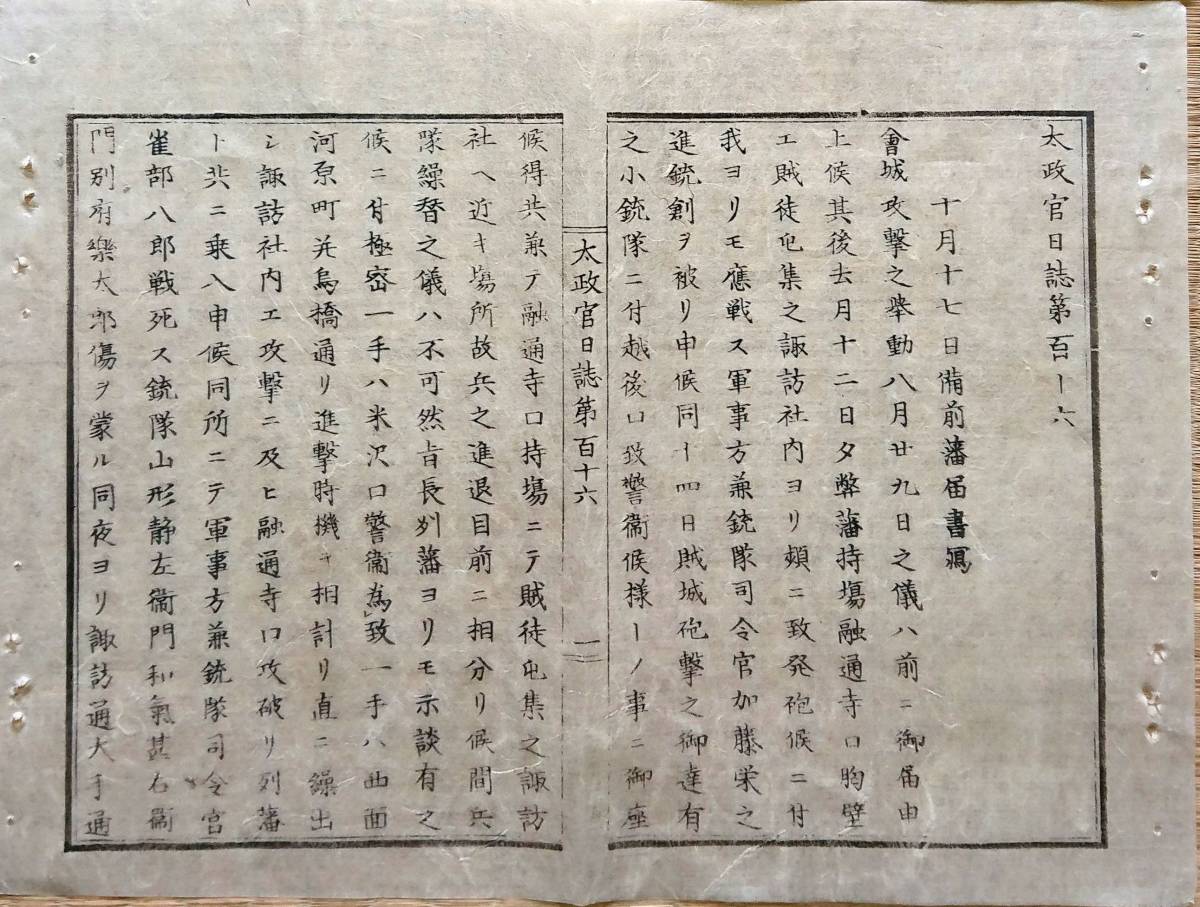 太政官日誌第百十六
十月十七日備前藩届書寫
會城攻撃之挙動八月廿九日之儀ハ前ニ御届申
上候其後去月十二日夕弊藩持場融通寺口胸壁
エ賊徒屯集之諏訪社内ヨリ頻ニ致発砲候ニ付
我ヨリモ應戦ス軍事方兼銃隊司令官加藤栄之
進銃創ヲ被リ申候同十四日賊城砲撃之御達有
之小銃隊ニ付越後口致警衞候様トノ事ニ御座
太政官日誌第百十六
一
候得共兼テ融通寺口持場ニテ賊徒屯集之諏訪
社ヘ近キ場所故兵之進退目前ニ相分リ候間兵
隊繰替之儀ハ不可然旨長州藩ヨリモ示談有之
候ニ付極密一手ハ米沢口警衞為致一手ハ西面
河原町并鳥橋通リ進撃時機ヲ相計リ直ニ繰出
シ諏訪社内エ攻撃ニ及ヒ融通寺口攻破リ列藩
ト共ニ乗入申候同所ニテ軍事方兼銃隊司令官
雀部八郎戦死ス銃隊山形静左衞門和氣甚右衞
門別府樂太郎傷ヲ蒙ル同夜ヨリ諏訪通大手通